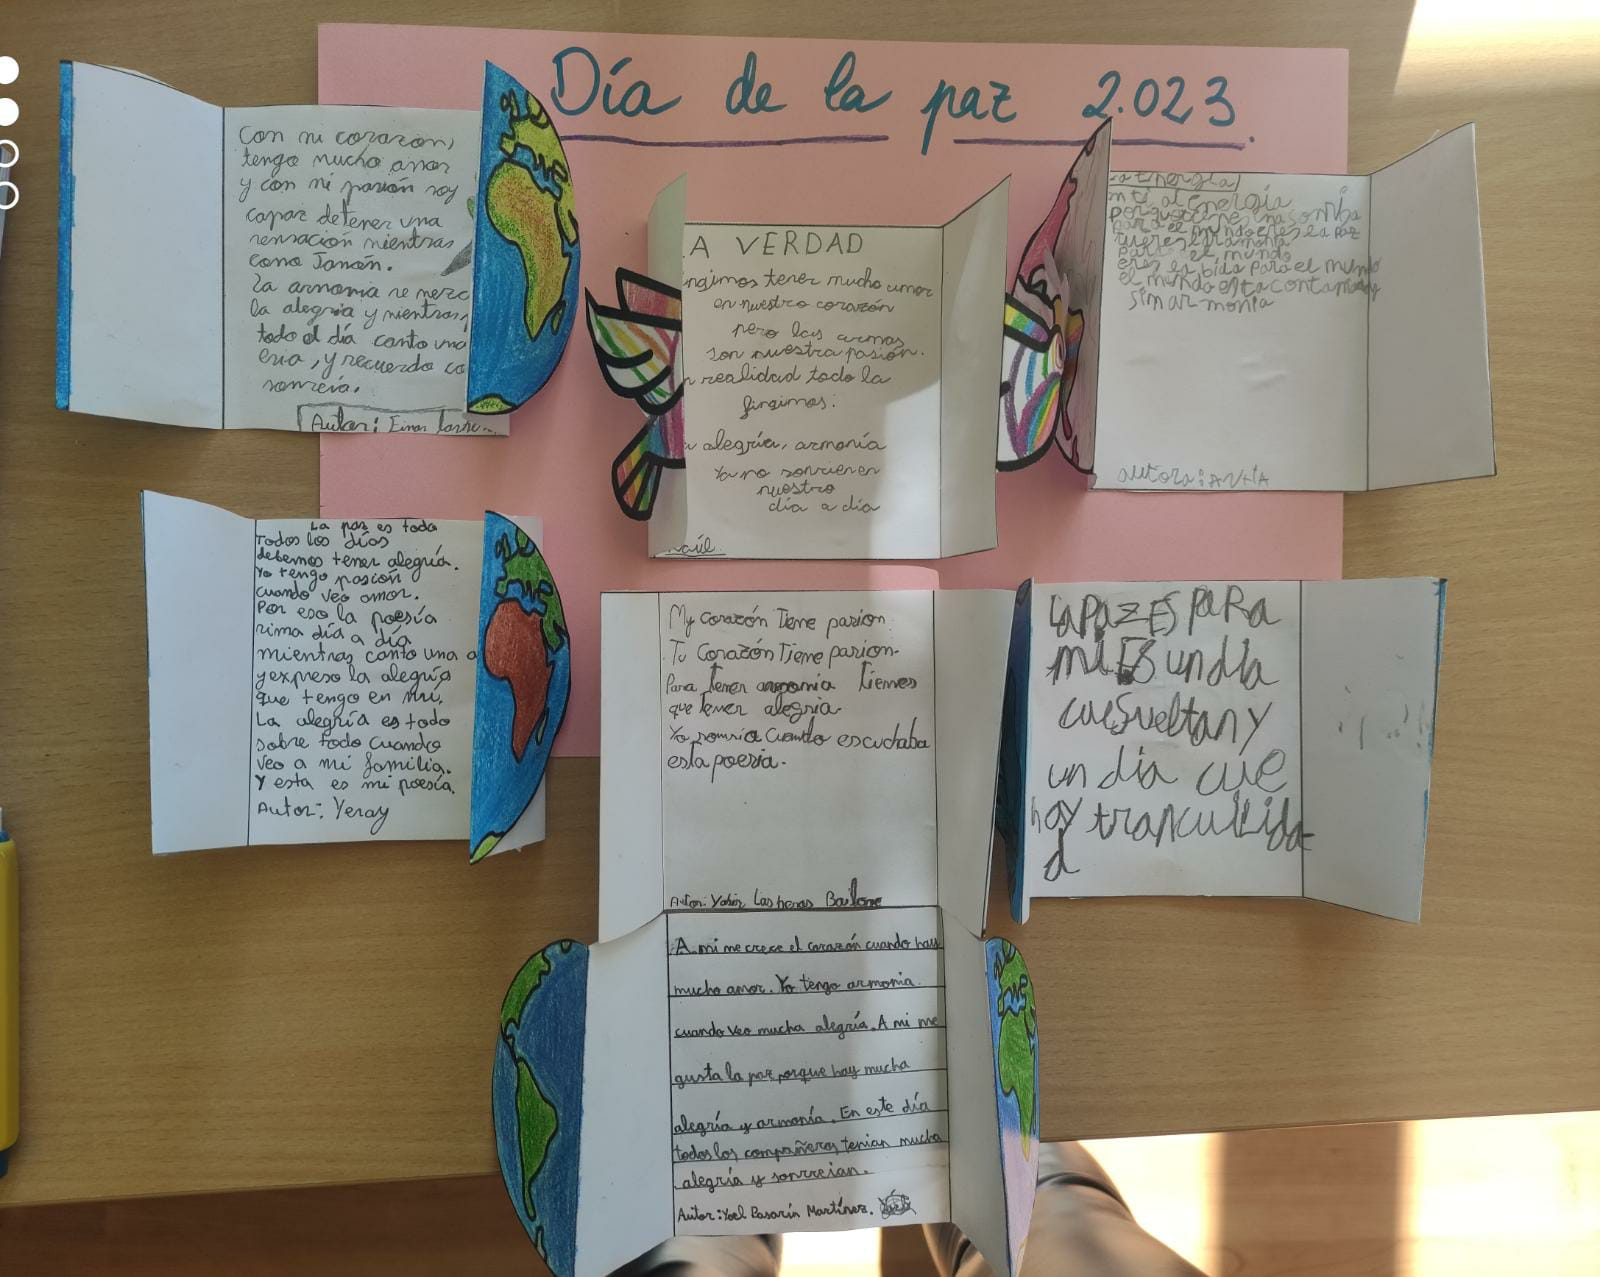 Día de la paz 2.023.
Con mi corazón,
tengo mucho amor
y con mi pasión soy
capaz de tener una
sensación mientras
como Jamón.
La armonia se
la alegría y mientras
todo el día canto una
y recuerdo
sonreía.
Autor: Einar
A VERDAD
ngimos tener mucho amor
en nuestro corazón
pero las armas
son nuestra pasión.
realidad todo la
fingimos:
alegría, armonía
Ya no sonrien en
nuestro
día a día
aúl
Energía
al energia
para el mundo eres la paz
tu eres
para el mundo
eres la bida para el mundo
el mundo esta
sin armonia
autora:
La paz es todo
Todos los días
debemos tener alegría.
Yo tengo pasión
cuando veo amor.
Por eso la poesía
rima día a día
mientras canto una
y expreso la alegría
que tengo en mí.
La alegría es todo
sobre todo cuando
veo a mi familia.
Y esta es mi poesía.
Autor: Yeray
My corazón Tiene pasion.
Tu Corazón Tiene pasion.
Para tener armonia tienes
que tener alegria.
Yo sonria cuando escuchaba
esta poesia.
Autor:
LaPaZ ES PaRa
mí ES un dia
cue Sueltan y
un dia cue
hay trancuilida
d
A mi me crece el corazón cuando hay
mucho amor. Yo tengo armonia
cuando veo mucha alegría. A mi me
gusta la paz porque hay mucha
alegría y armonía. En este día
todos los compañeros tenian mucha
alegría y sonreian.
Autor: Yoel Pasarín Martínez.